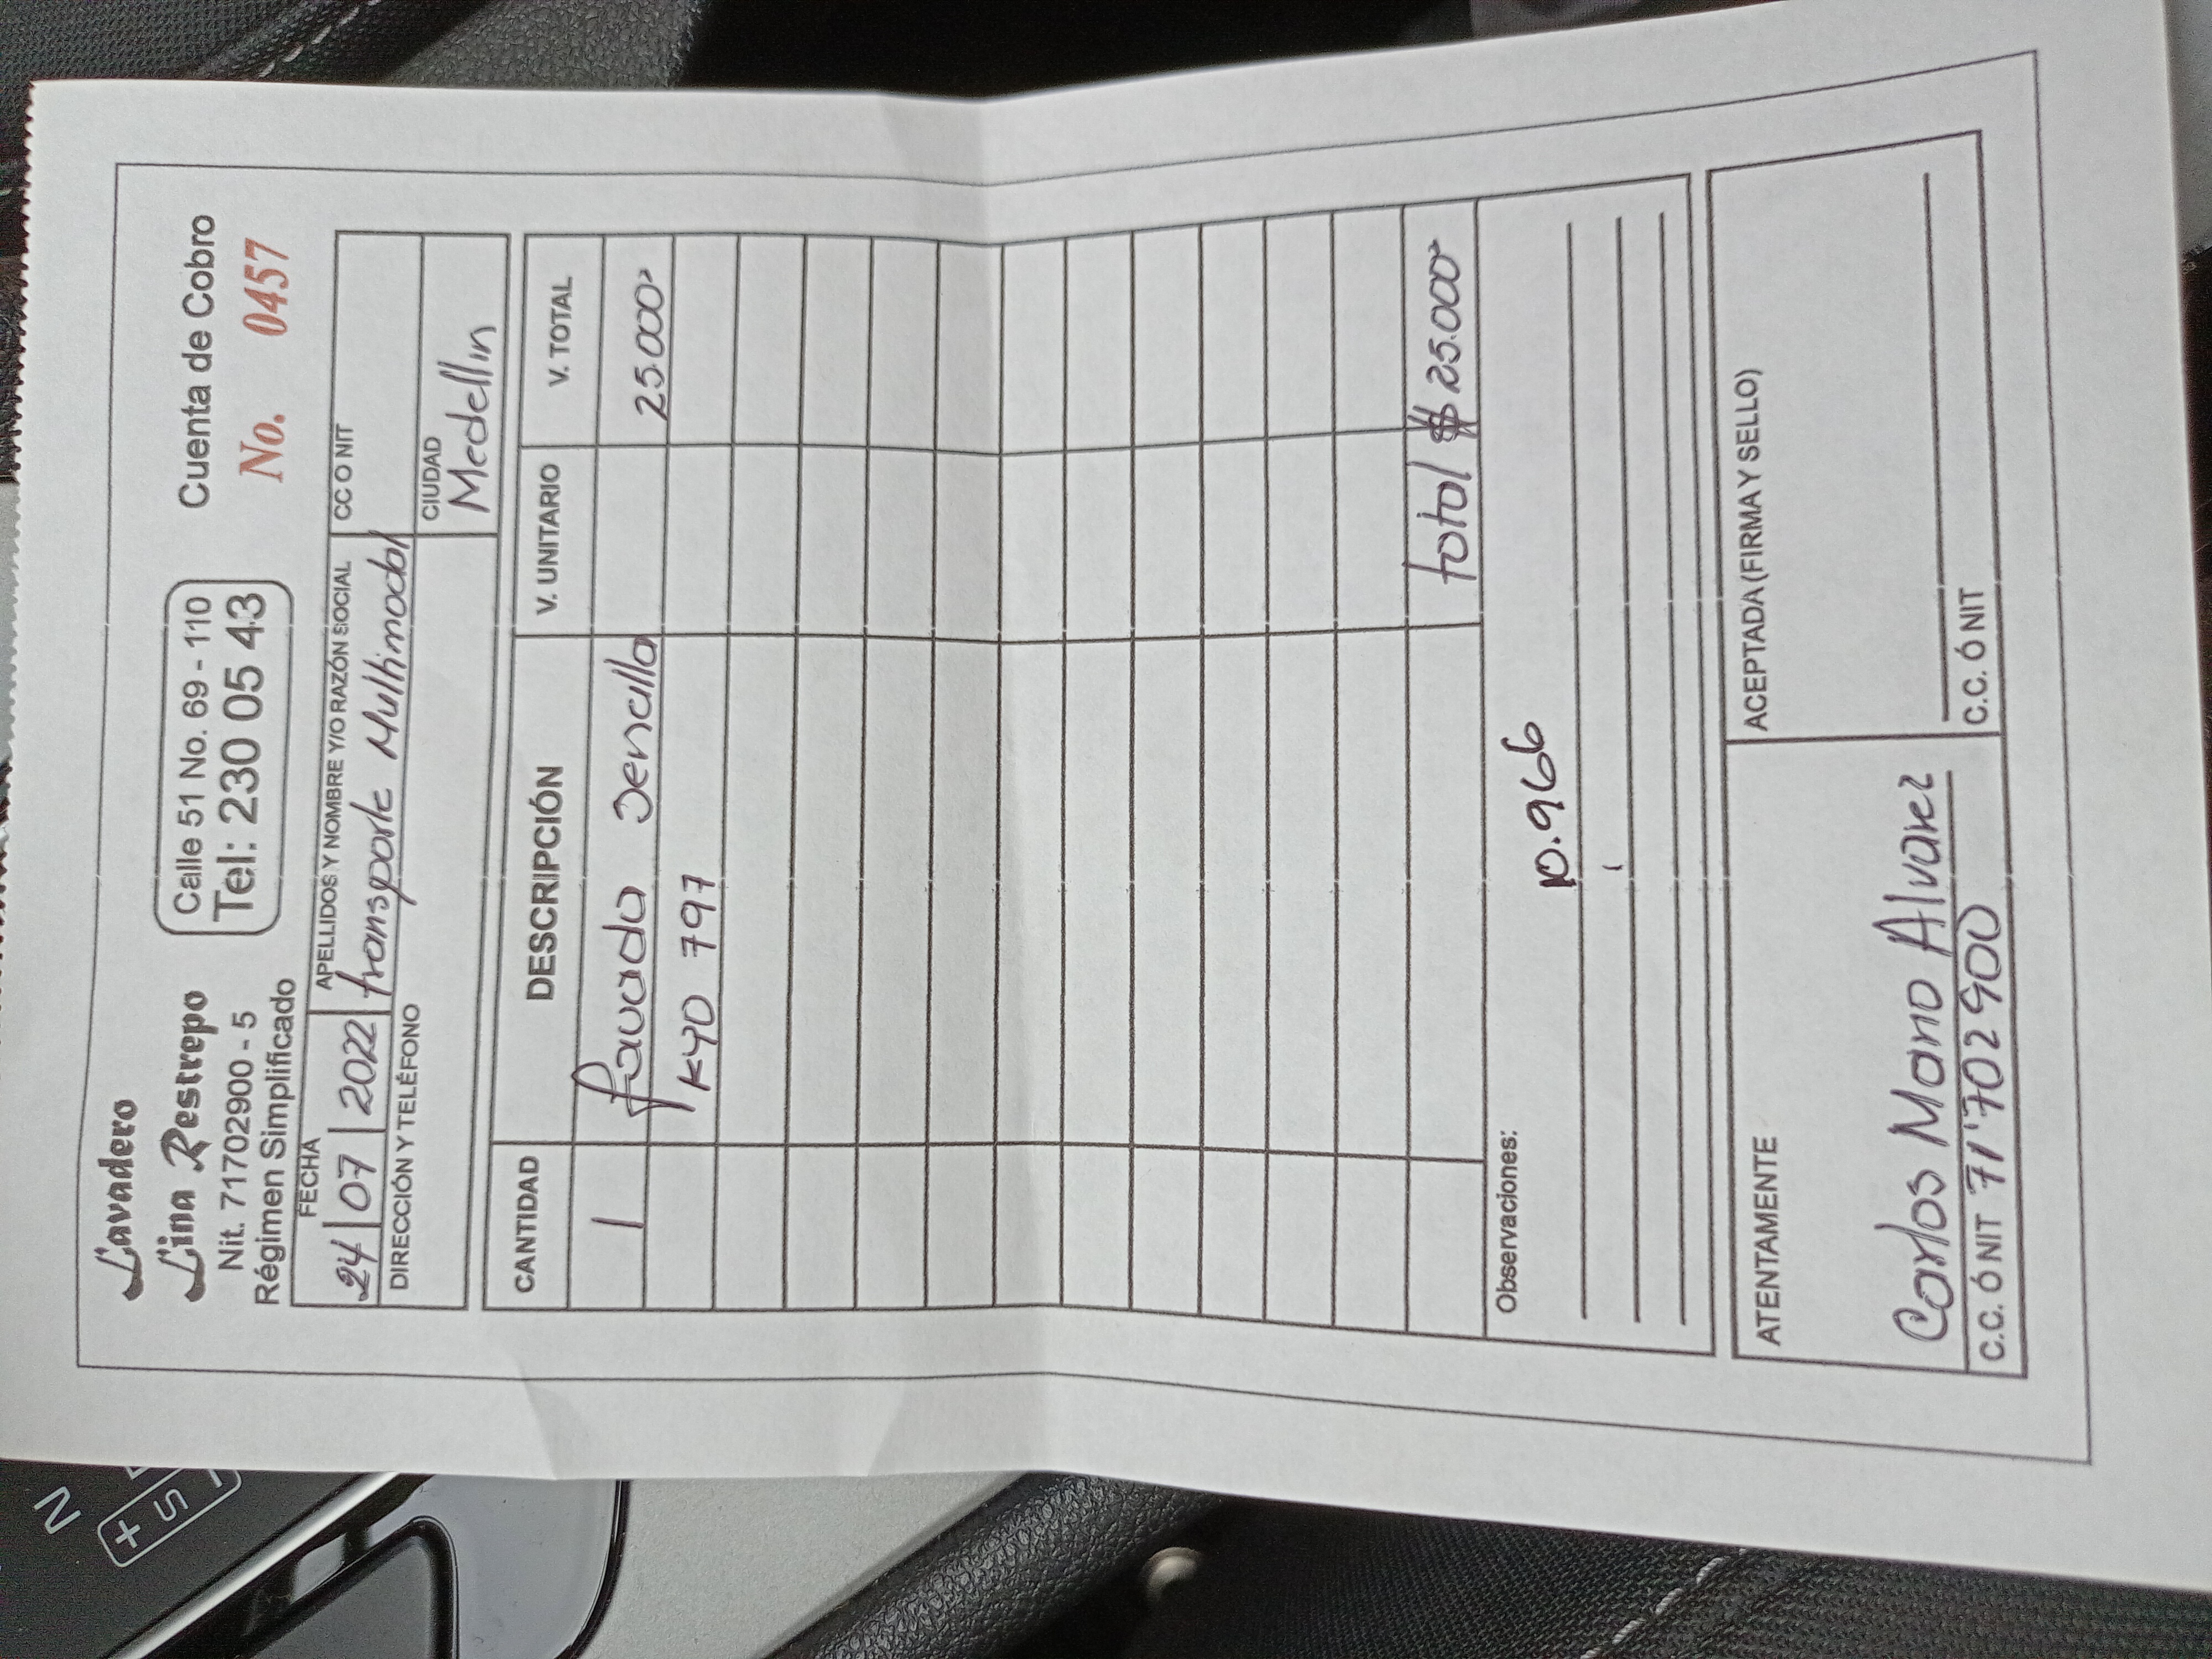 Lavadero
Lina Restrepo
Nit. 71702900 - 5
Régimen Simplificado
Calle 51 No. 69 - 110
Tel: 230 05 43
Cuenta de Cobro
No. 0457
FECHA
24 07 2022
APELLIDOS Y NOMBRE Y/O RAZÓN SOCIAL
transporte Multimodal
CC O NIT
DIRECCIÓN Y TELÉFONO
CIUDAD
Medellin
CANTIDAD DESCRIPCIÓN V. UNITARIO V. TOTAL
1 lavada sencilla 25.000
KYO 797
total $ 25.000
Observaciones:
10.966
ATENTAMENTE
Carlos Mario Alvarez
C.C. Ó NIT 71'702900
ACEPTADA (FIRMA Y SELLO)
C.C. Ó NIT
N
+
S